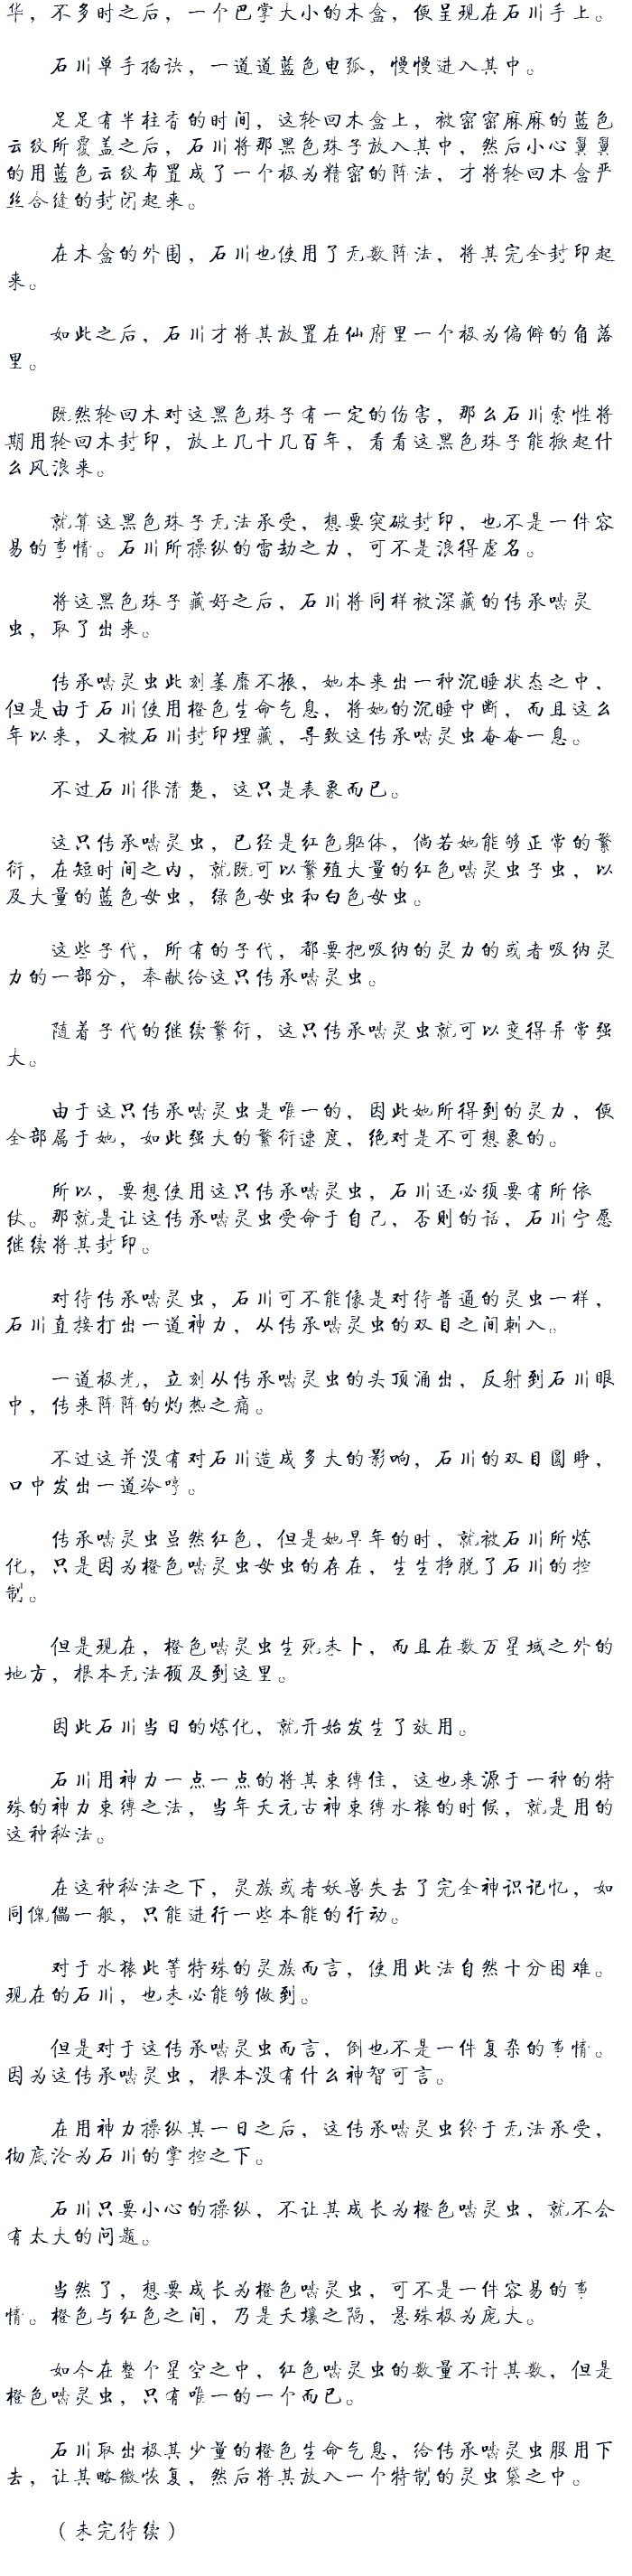 华，不多时之后，一个巴掌大小的木盒，便呈现在石川手上。
石川单手掐诀，一道道蓝色电弧，慢慢进入其中。
足足有半柱香的时间，这轮回木盒上，被密密麻麻的蓝色
云纹所覆盖之后，石川将那黑色珠子放入其中，然后小心翼翼
的用蓝色云纹布置成了一个极为精密的阵法，才将轮回木盒严
丝合缝的封闭起来。
在木盒的外围，石川也使用了无数阵法，将其完全封印起
来。
如此之后，石川才将其放置在仙府里一个极为偏僻的角落
里。
既然轮回木对这黑色珠子有一定的伤害，那么石川索性将
期用轮回木封印，放上几十几百年，看看这黑色珠子能掀起什
么风浪来。
就算这黑色珠子无法承受，想要突破封印，也不是一件容
易的事情。石川所操纵的雷劫之力，可不是浪得虚名。
将这黑色珠子藏好之后，石川将同样被深藏的传承噬灵
虫，取了出来。
传承噬灵虫此刻萎靡不振，她本来出一种沉睡状态之中，
但是由于石川使用橙色生命气息，将她的沉睡中断，而且这么
年以来，又被石川封印埋藏，导致这传承噬灵虫奄奄一息。
不过石川很清楚，这只是表象而已。
这只传承噬灵虫，已经是红色躯体，倘若她能够正常的繁
衍，在短时间之内，就既可以繁殖大量的红色噬灵虫子虫，以
及大量的蓝色母虫，绿色母虫和白色母虫。
这些子代，所有的子代，都要把吸纳的灵力的或者吸纳灵
力的一部分，奉献给这只传承噬灵虫。
随着子代的继续繁衍，这只传承噬灵虫就可以变得异常强
大。
由于这只传承噬灵虫是唯一的，因此她所得到的灵力，便
全部属于她，如此强大的繁衍速度，绝对是不可想象的。
所以，要想使用这只传承噬灵虫，石川还必须要有所依
仗。那就是让这传承噬灵虫受命于自己，否则的话，石川宁愿
继续将其封印。
对待传承噬灵虫，石川可不能像是对待普通的灵虫一样，
石川直接打出一道神力，从传承噬灵虫的双目之间刺入。
一道极光，立刻从传承噬灵虫的头顶涌出，反射到石川眼
中，传来阵阵的灼热之痛。
不过这并没有对石川造成多大的影响，石川的双目圆睁，
口中发出一道冷哼。
传承噬灵虫虽然红色，但是她早年的时，就被石川所炼
化，只是因为橙色噬灵虫母虫的存在，生生挣脱了石川的控
制。
但是现在，橙色噬灵虫生死未卜，而且在数万星域之外的
地方，根本无法顾及到这里。
因此石川当日的炼化，就开始发生了效用。
石川用神力一点一点的将其束缚住，这也来源于一种的特
殊的神力束缚之法，当年天元古神束缚水猿的时候，就是用的
这种秘法。
在这种秘法之下，灵族或者妖兽失去了完全神识记忆，如
同傀儡一般，只能进行一些本能的行动。
对于水猿此等特殊的灵族而言，使用此法自然十分困难。
现在的石川，也未必能够做到。
但是对于这传承噬灵虫而言，倒也不是一件复杂的事情。
因为这传承噬灵虫，根本没有什么神智可言。
在用神力操纵其一日之后，这传承噬灵虫终于无法承受，
彻底沦为石川的掌控之下。
石川只要小心的操纵，不让其成长为橙色噬灵虫，就不会
有太大的问题。
当然了，想要成长为橙色噬灵虫，可不是一件容易的事
情。橙色与红色之间，乃是天壤之隔，悬殊极为庞大。
如今在整个星空之中，红色噬灵虫的数量不计其数，但是
橙色噬灵虫，只有唯一的一个而已。
石川取出极其少量的橙色生命气息，给传承噬灵虫服用下
去，让其略微恢复，然后将其放入一个特制的灵虫袋之中。
（未完待续）